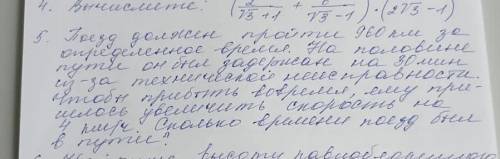 4. Вычислите: (2/√3+1 + /√3-1) · (2√3-1)
5. Поезд должен пройти 960 км за
определенное время. На половине
пути он был задержан на 30 мин
из-за технической неисправности.
Чтобы прибыть вовремя, ему при-
шлось увеличить скорость на
4 км/ч. Сколько времени поезд был
в пути?
высоты равнобедренного